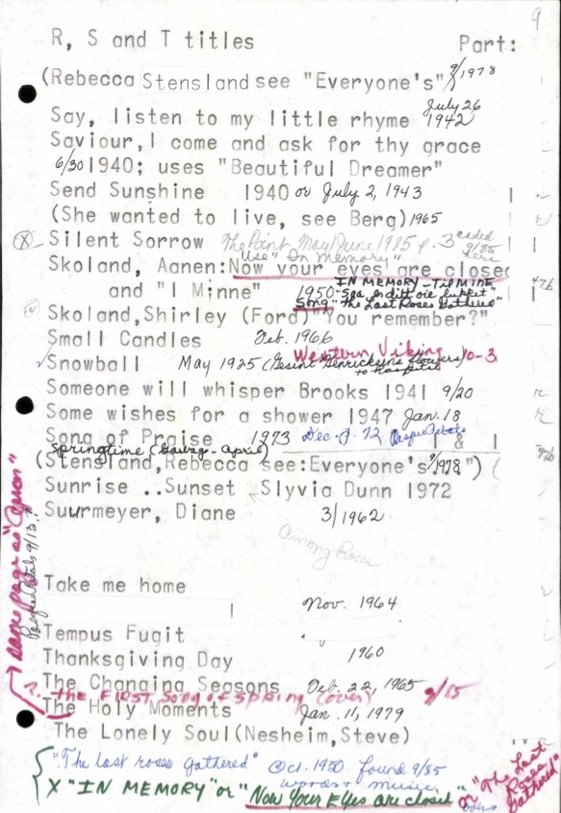 9
R, S and T titles Part:
(Rebecca Stensland see "Everyone's" 9/1978
Say, listen to my little rhyme July 26 1942
Saviour, I come and ask for thy grace
6/30 1940; uses "Beautiful Dreamer"
Send Sunshine 1940 or July 2, 1943
(She wanted to live, see Berg) 1965
(X) Silent Sorrow The Point May/June 1985 p. 3 9/85
Use "In Memory"
Skoland, Aanen: Now your eyes are closed
IN MEMORY - Til MINE
and "I Minne" 1950 "Saa er ditt oie lukket" 47b
Song "The Last Roses Gathered"
Skoland, Shirley (Ford) You remember?"
Small Candles Feb. 1966
Western Viking 10-3
✓Snowball May 1925 (Gesint Henricksens flowers) to Hospital
Someone will whisper Brooks 1941 9/20
Some wishes for a shower 1947 Jan. 18
Song of Praise 1973 Dec. 72 Pasque Petals 1 & 1
Springtime (- April)
(Stensland, Rebecca see: Everyone's 9/1978 ")
Sunrise ..Sunset Slyvia Dunn 1972
Suurmeyer, Diane 3/1962
Among Roses
Take me home
Nov. 1964
Tempus Fugit
Thanksgiving Day 1960
The Changing Seasons Feb. 22, 1965
?. The FIRST Song of Spring (over) 9/15
The Holy Moments Jan. 11, 1979
The Lonely Soul (Nesheim, Steve)
"The last roses gathered" Oct. 1950 found 9/85
words & music
X "IN MEMORY" or "Now Your Eyes are closed" or "The Last Roses Gathered"
same page as
Pasque Petals 9/13